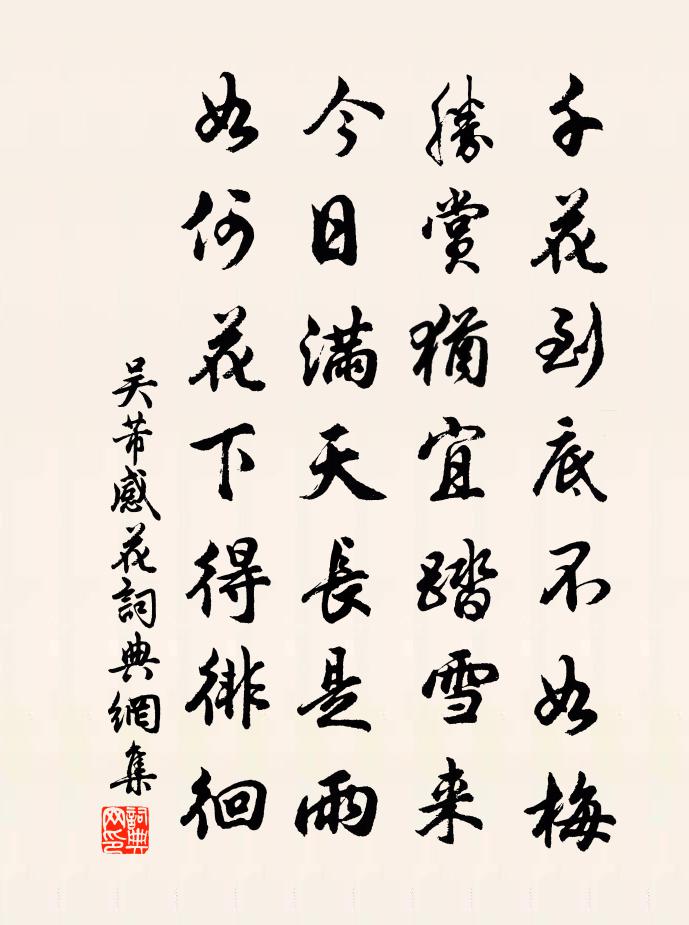 千花到底不如梅
勝賞猶宜踏雪来
今日滿天長是雨
如何花下得徘徊
吴芾感花詞典網集
詞典網印